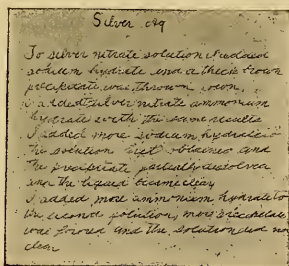 Silver Ag
To silver nitrate solution I added
sodium hydrate and a thick brown
precipitate was thrown down.
I added silver nitrate ammonium
hydrate with the same results
I added more sodium hydrate to
the solution first obtained and
the precipitate partially dissolved
and the liquid became clear
I added more ammonium hydrate to
the second solution, more precipitate
was formed and the solution did not
clear